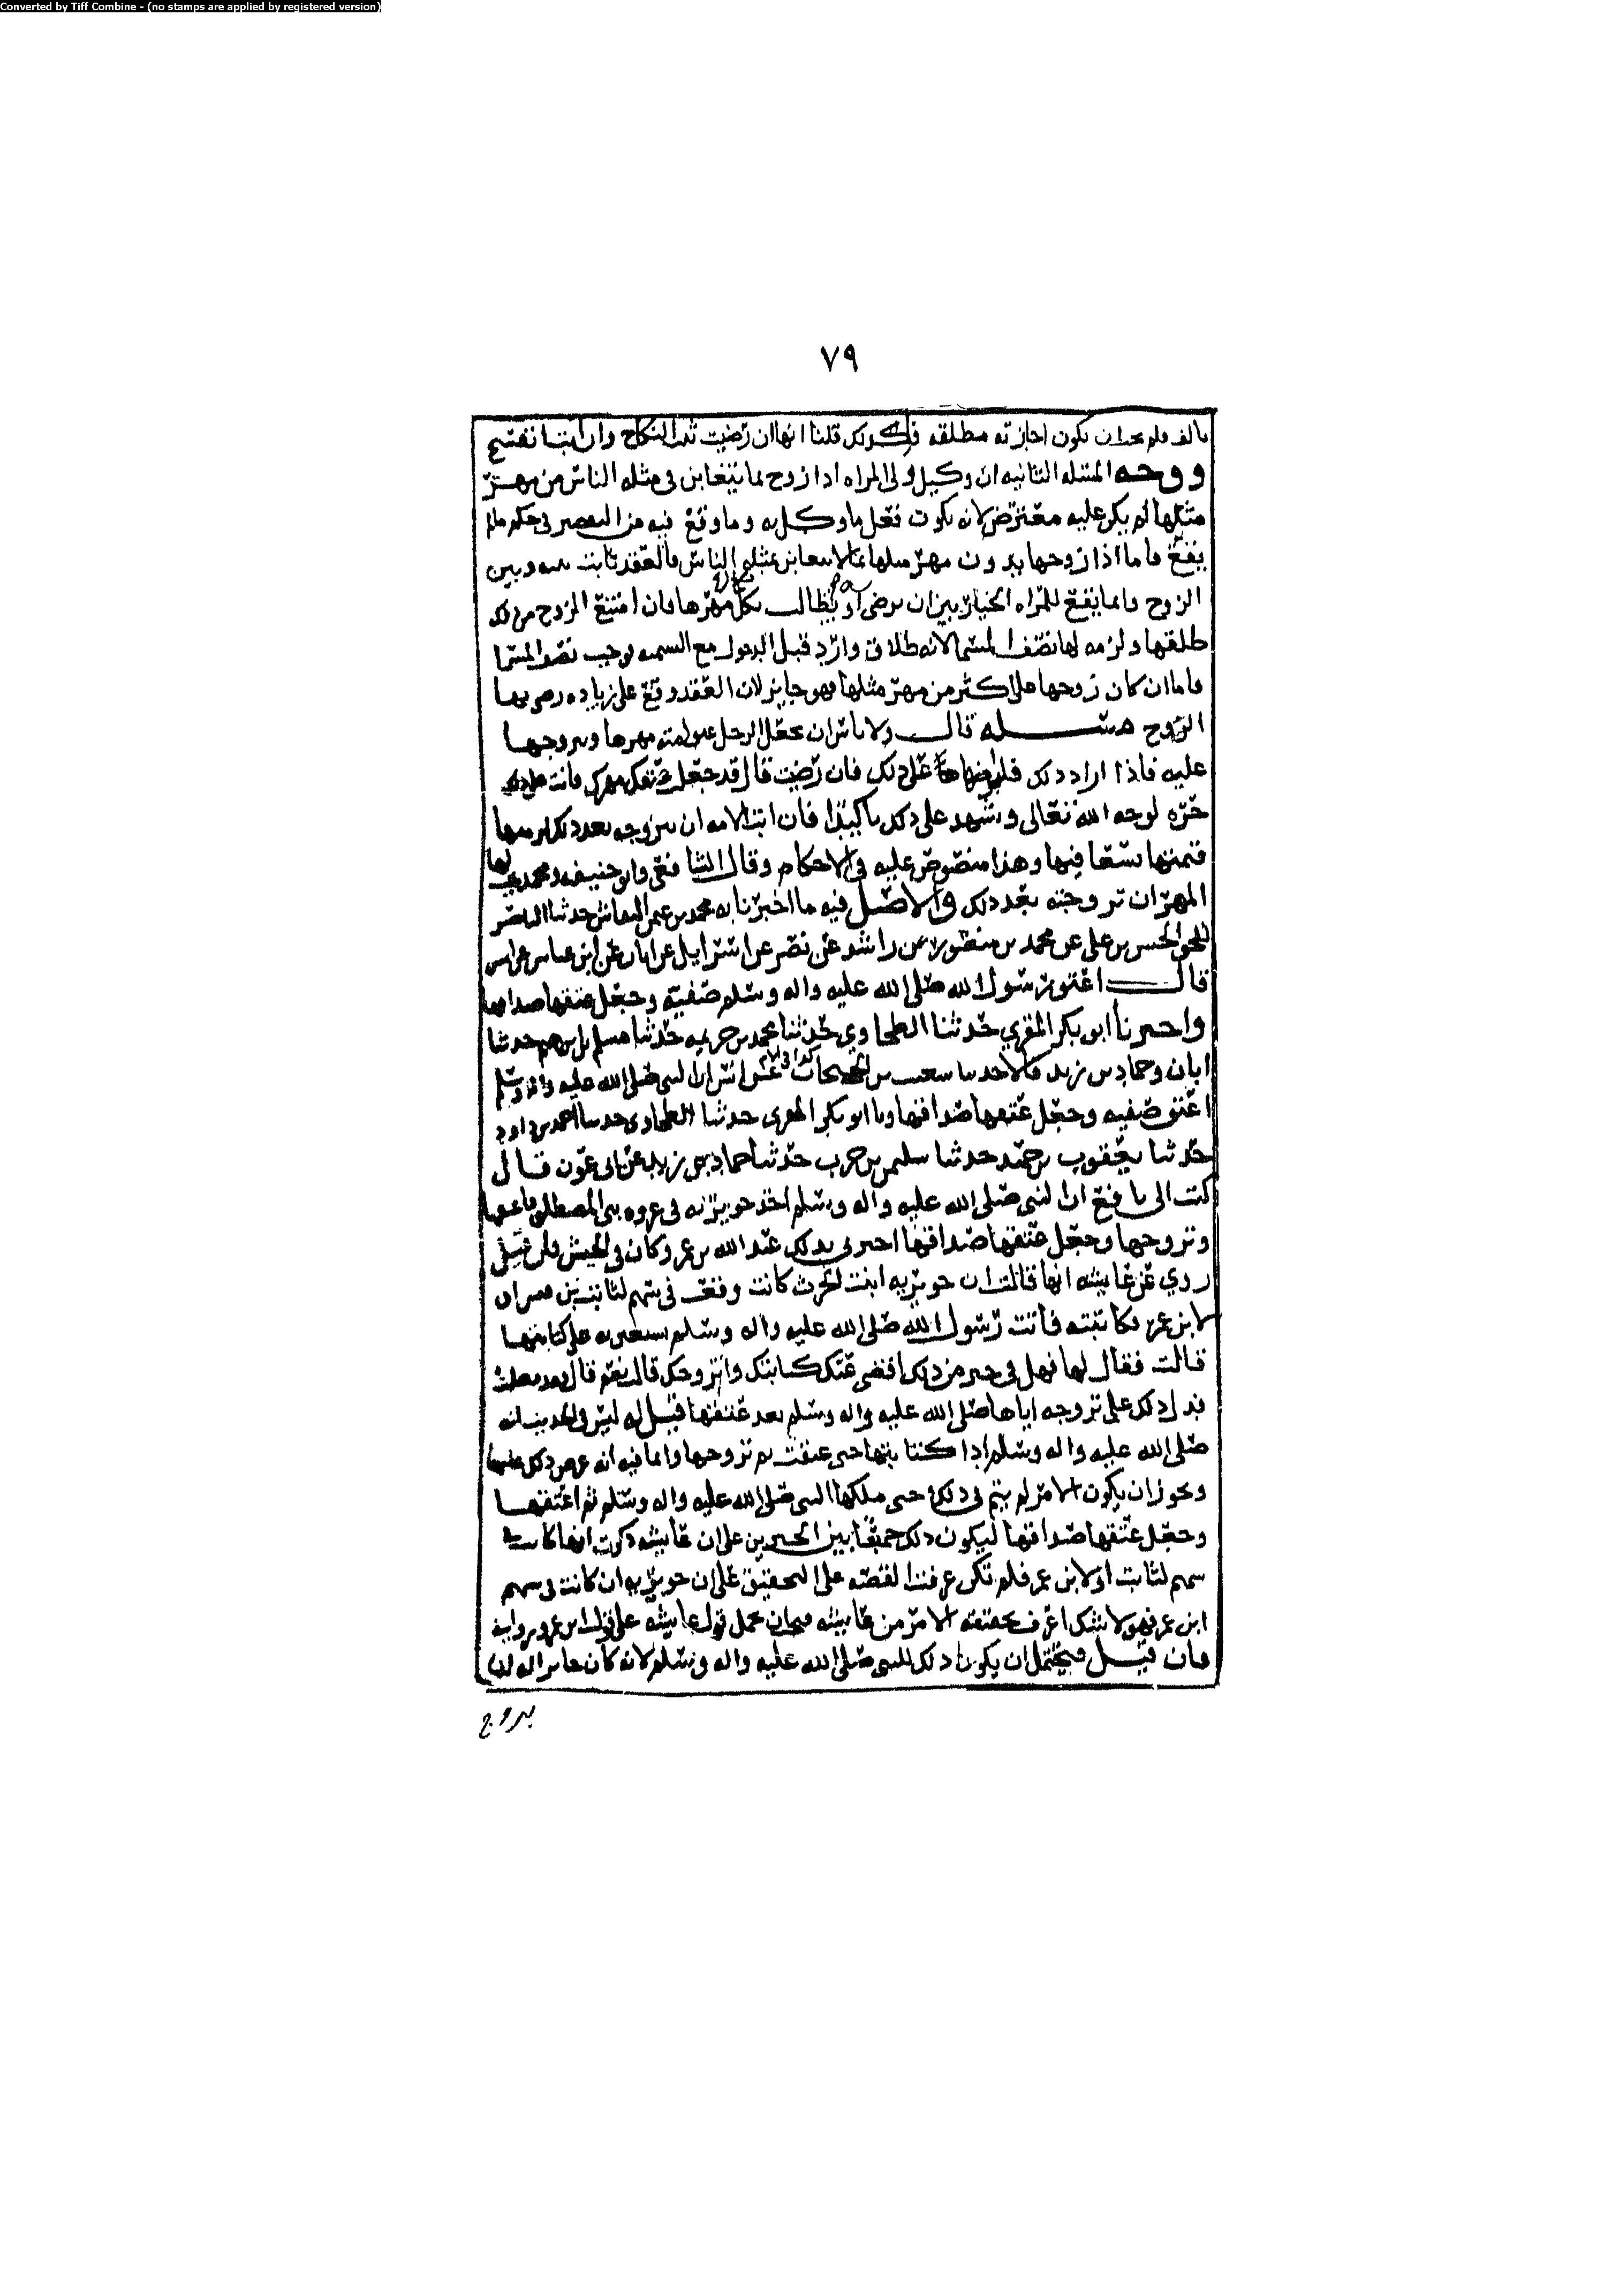 Converted by Tiff Combine - (no stamps are applied by registered version)
٧٩
بالف فلم يجز ان يكون اجازته مطلقه فلذلك قلنا انها ان رضيت ثبت النكاح وان ابت انفسخ
ووجه المسئله الثانيه ان وكيل ولي المراه اذا زوج بما يتغابن في مثله الناس من مهر
مثلها لم يكن عليه معترض لانه يكون فعل ما وكل به وما وقع فيه من النقص في حكم ما لم
يقع فاما اذا زوجها بدون مهر مثلها بما لا يتغابن بمثله الناس فالعقد ثابت بينه وبين
الزوج وانما يقع للمراه الخيار بين ان ترضى او تطالب بكمال مهرها فان امتنع الزوج من ذلك
طلقها ولزمه لها نصف المسما لانه طلاق وارد قبل الدخول مع التسميه يوجب نصف المسما
فاما ان كان زوجها على اكثر من مهر مثلها فهو جايز لان العقد وقع على زياده رضي بها
الزوج مسئله قال ولا باس ان يجعل الرجل عتق امته مهرها ويتزوجها
عليه فاذا اراد ذلك فليراضها على ذلك فان رضيت قال قد جعلت عتقك مهرك فانت على ذلك
حره لوجه الله تعالى ويشهد على ذلك تاكيدا فان ابت الامه ان تتزوجه بعد ذلك لزمتها
قيمتها تسعا فيها وهذا منصوص عليه في الاحكام وقال الشافعي وابو حنيفه ومحمد يجب لها
المهر ان تزوجته بعد ذلك والاصل فيه ما اخبرنا به محمد بن عثمن النقاش حدثنا الناصر
للحق الحسن بن علي عن محمد بن منصور عن راشد عن نصر عن اسرايل عن ابان عن ابن عباس عن انس
قال اعتق رسول الله صلى الله عليه واله وسلم صفيه وجعل عتقها صداقها
واخبرنا ابو بكر المقري حدثنا الطحاوي حدثنا محمد بن خزيمه حدثنا مسلم بن ابرهيم حدثنا
ابان وحماد بن زيد قالا حدثنا شعيب بن الحبحاب عن انس ان النبي صلى الله عليه واله وسلم
اعتق صفيه وجعل عتقها صداقها ونا ابو بكر المقري حدثنا الطحاوي حدثنا احمد بن داود
حدثنا يعقوب بن حميد حدثنا سليمن بن حرب حدثنا حماد بن زيد عن ابي عون قال
كتب الي نافع ان النبي صلى الله عليه واله وسلم اخذ جويريه في غزوه بني المصطلق فاعتقها
وتزوجها وجعل عتقها صداقها اخبرني بذلك عبد الله بن عمر وكان في الجيش ولمن قيل
روي عن عايشه انها قالت ان جويريه ابنت الحرث كانت وقعت في سهم لثابت بن قيس او
لابن عمر فكاتبته فاتت رسول الله صلى الله عليه واله وسلم تستعين به على كتابتها
قالت فقال لها فهل في خير من ذلك اقضي عنك كتابتك واتزوجك قالت نعم قال قد فعلت
فدل ذلك على تزوجه اياها صلى الله عليه واله وسلم بعد عتقها قيل له ليس في الحديث انه
صلى الله عليه واله وسلم ادا كتابتها حتى عتقت ثم تزوجها وانما فيه انه عرض ذلك عليها
ويجوز ان يكون الامر لم يتم في ذلك حتى ملكها النبي صلى الله عليه واله وسلم ثم اعتقها
وجعل عتقها صداقها ليكون ذلك جمعا بين الخبرين على ان عايشه ذكرت انها كانت في
سهم لثابت او لابن عمر فلم تكن عرفت القصه على التحقيق على ان جويريه ان كانت في سهم
ابن عمر فهو لا شك اعرف بحقيقه الامر من عايشه فيجب ان يحمل قول عايشه على قول ابن عمر وروايته
فان قيل فيحتمل ان يكون ذلك للنبي صلى الله عليه واله وسلم لانه كان جايزا له ان
يتزوج